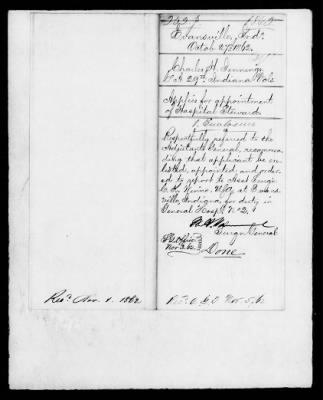 Evansville, Ind.
Octob 27th 1862.
Charles H. Jennings
29th Indiana Vols
Applies for appointment
of Hospital Steward
1 Enclosure
Respectfully referred to the
Adjutant General, recommen-
ding that applicant be en-
listed, appointed, and order-
ed to report to Asst Surgn
at Evans-
ville, Indiana, for duty in
General Hospl No 2.
Surgn General
Nov 3
Done
Recd Nov. 1. 1862
Nov. 5,